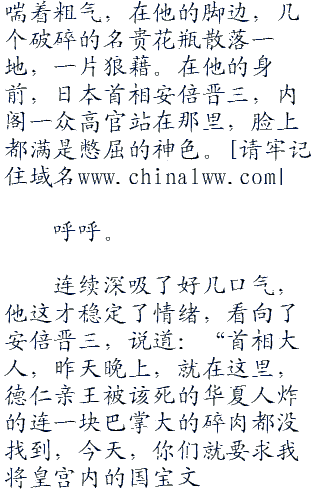 喘着粗气，在他的脚边，几
个破碎的名贵花瓶散落一
地，一片狼藉。在他的身
前，日本首相安倍晋三，内
阁一众高官站在那里，脸上
都满是憋屈的神色。[请牢记
住域名www.china1ww.com|
呼呼。
连续深吸了好几口气，
他这才稳定了情绪，看向了
安倍晋三，说道：“首相大
人，昨天晚上，就在这里，
德仁亲王被该死的华夏人炸
的连一块巴掌大的碎肉都没
找到，今天，你们就要求我
将皇宫内的国宝文